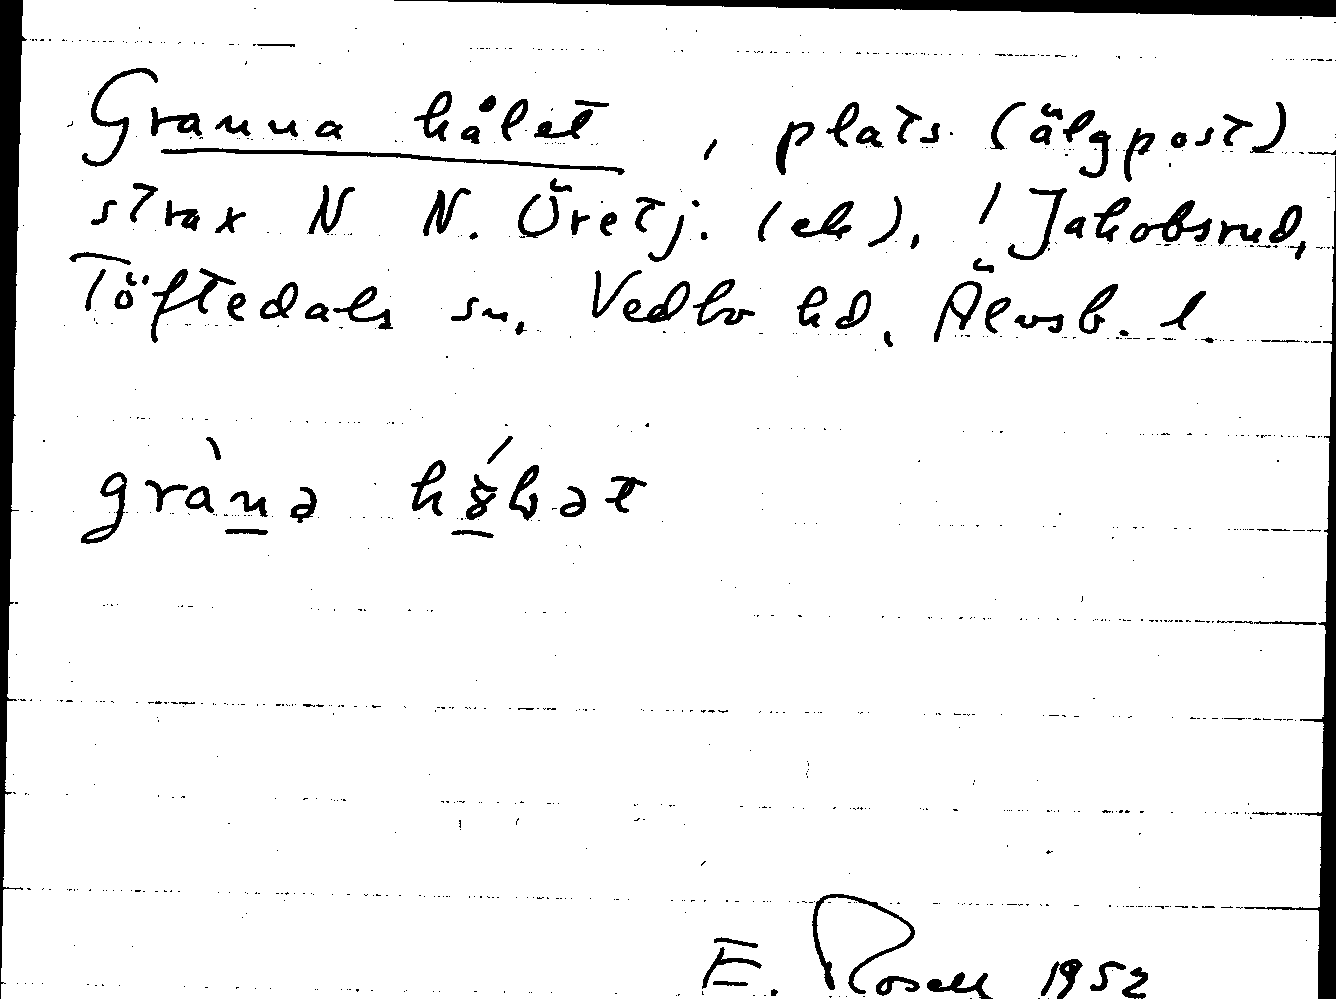 Granna hålet, plats (älgpost)
strax N N. Öretj. (ek), / Jakobsrud,
Töftedals sn, Vedbo hd, Älvsb. l.
E. Rosell 1952